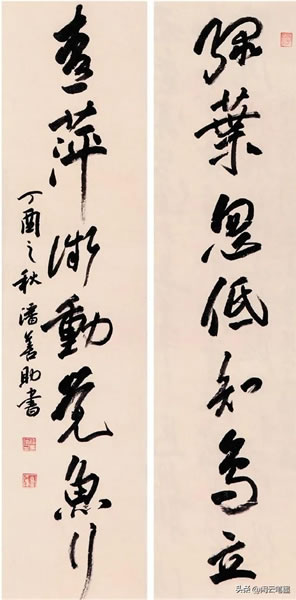 綠葉忽低知鳥立
青萍微動覺魚行
丁酉之秋潘善助書
头条@闲云笔墨